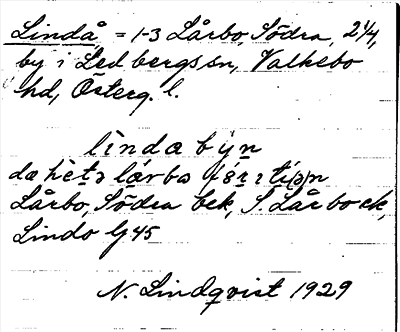 Lindå, = 1-3 Lårbo, Södra, 2 1/4,
by i Ledbergs sn, Valkebo
hd, Österg. l.
lìnda býn
dæ hètɜ lárbo för típn
Lårbo, Södra bek, S. Lårbo ek,
Lindo Gj 45
N. Lindqvist 1929